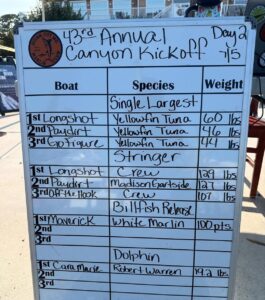 43rd Annual Day 2
Canyon Kickoff 7/5
Boat Species Weight
Single Largest
1st Longshot Yellowfin Tuna 60 lbs
2nd Paydirt Yellowfin Tuna 46 lbs
3rd Go Figure Yellowfin Tuna 44 lbs
Stringer
1st Longshot Crew 129 lbs
2nd Paydirt Madison Gartside 127 lbs
3rd Off the Hook Crew 107 lbs
Billfish Release
1st Maverick White Marlin 100 pts
2nd
3rd
Dolphin
1st Cara Marie Robert Warren 19.2 lbs
2nd
3rd